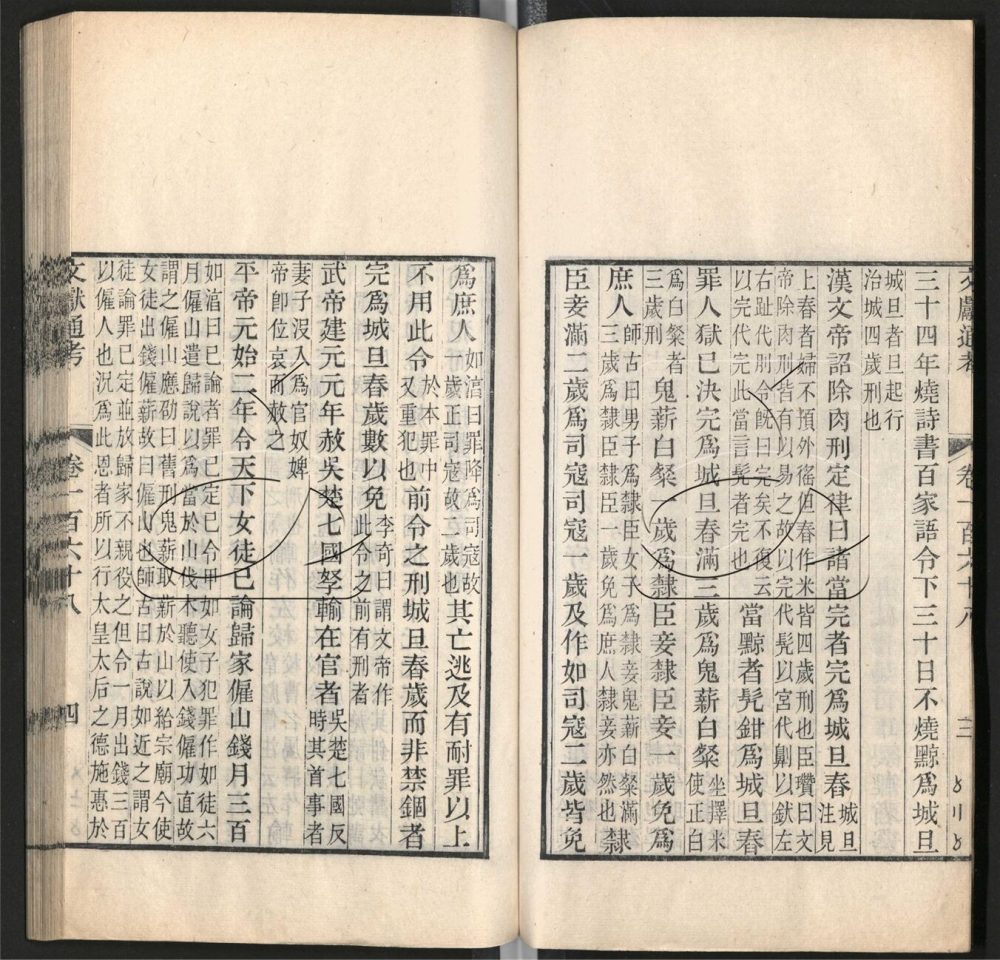 文獻通考 卷一百六十八 三
三十四年燒詩書百家語令下三十日不燒黥爲城旦
城旦者旦起行
治城四歲刑也
漢文帝詔除肉刑定律曰諸當完者完爲城旦舂城旦
注見
上舂者婦不預外徭但舂作米皆四歲刑也臣瓚曰文
帝除肉刑皆有以易之故以完代髡以宮代劓以釱左
右趾代刖今旣曰完矣不復云
以完代完此當言髡者完也當黥者髡鉗爲城旦舂
罪人獄已決完爲城旦舂滿三歲爲鬼薪白粲坐擇米
使正白
爲白粲者
三歲刑鬼薪白粲一歲爲隸臣妾隸臣妾一歲免爲
庶人師古曰男子爲隸臣女子爲隸妾鬼薪白粲滿
三歲爲隸臣隸臣一歲免爲庶人隸妾亦然也隸
臣妾滿二歲爲司寇司寇一歲及作如司寇二歲皆免
爲庶人如淳曰罪降爲司寇故
一歲正司寇故二歲也其亡逃及有耐罪以上
不用此令於本罪中
又重犯也前令之刑城旦舂歲而非禁錮者
完爲城旦舂歲數以免李奇曰謂文帝作
此令之前有刑者
武帝建元元年赦吳楚七國孥輸在官者吳楚七國反
時其首事者
妻子沒入爲官奴婢
帝卽位哀而赦之
平帝元始二年令天下女徒已論歸家僱山錢月三百
如淳曰已論者罪已定已令甲如女子犯罪作如徒六
月僱山遣歸說以爲當於山伐木聽使入錢僱功直故
謂之僱山應劭曰舊刑鬼薪取薪於山以給宗廟今使
女徒出錢僱薪故曰僱山也師古曰古說如近之謂女
徒論罪已定並放歸家不親役之但令一月出錢三百
以僱人也況爲此恩者所以行太皇太后之德施惠於
文獻通考 卷一百六十八 四